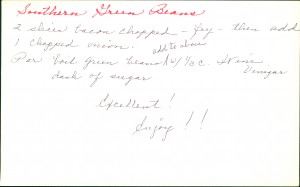 Southern Green Beans
2 slices bacon chopped - fry - then add
1 chopped onion.
add to above
Par boil green beans w/ 1/2 c. Wine
Vinegar
dash of sugar
Excellent!
Enjoy!!